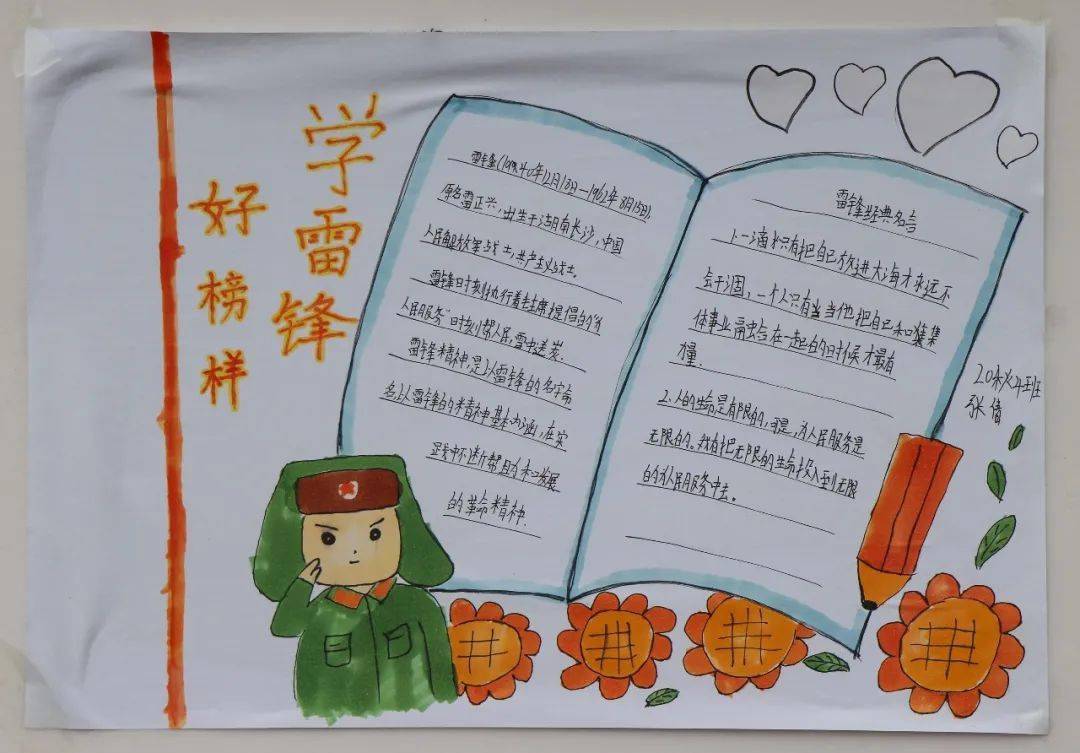 学雷锋
好榜样
雷锋(1940年12月18日—1962年8月15日),
原名雷正兴,出生于湖南长沙,中国
人民解放军战士,共产主义战士。
雷锋时刻执行着毛主席提倡的“为
人民服务”时刻帮人民,雪中送炭.
雷锋精神,是以雷锋的名字命
名以雷锋的精神基本内涵,在实
践中不断 和发展
的革命精神.
雷锋经典名言
1、一滴水只有把自己放进大海才永远不
会干涸,一个人只有当当他把自己和 集
体事业融会在一起的时候才最有
力量.
2.人的生命是有限的,可是,为人民服务是
无限的。我有把无限的生命投入到无限
的为人民服务中去。
张倩